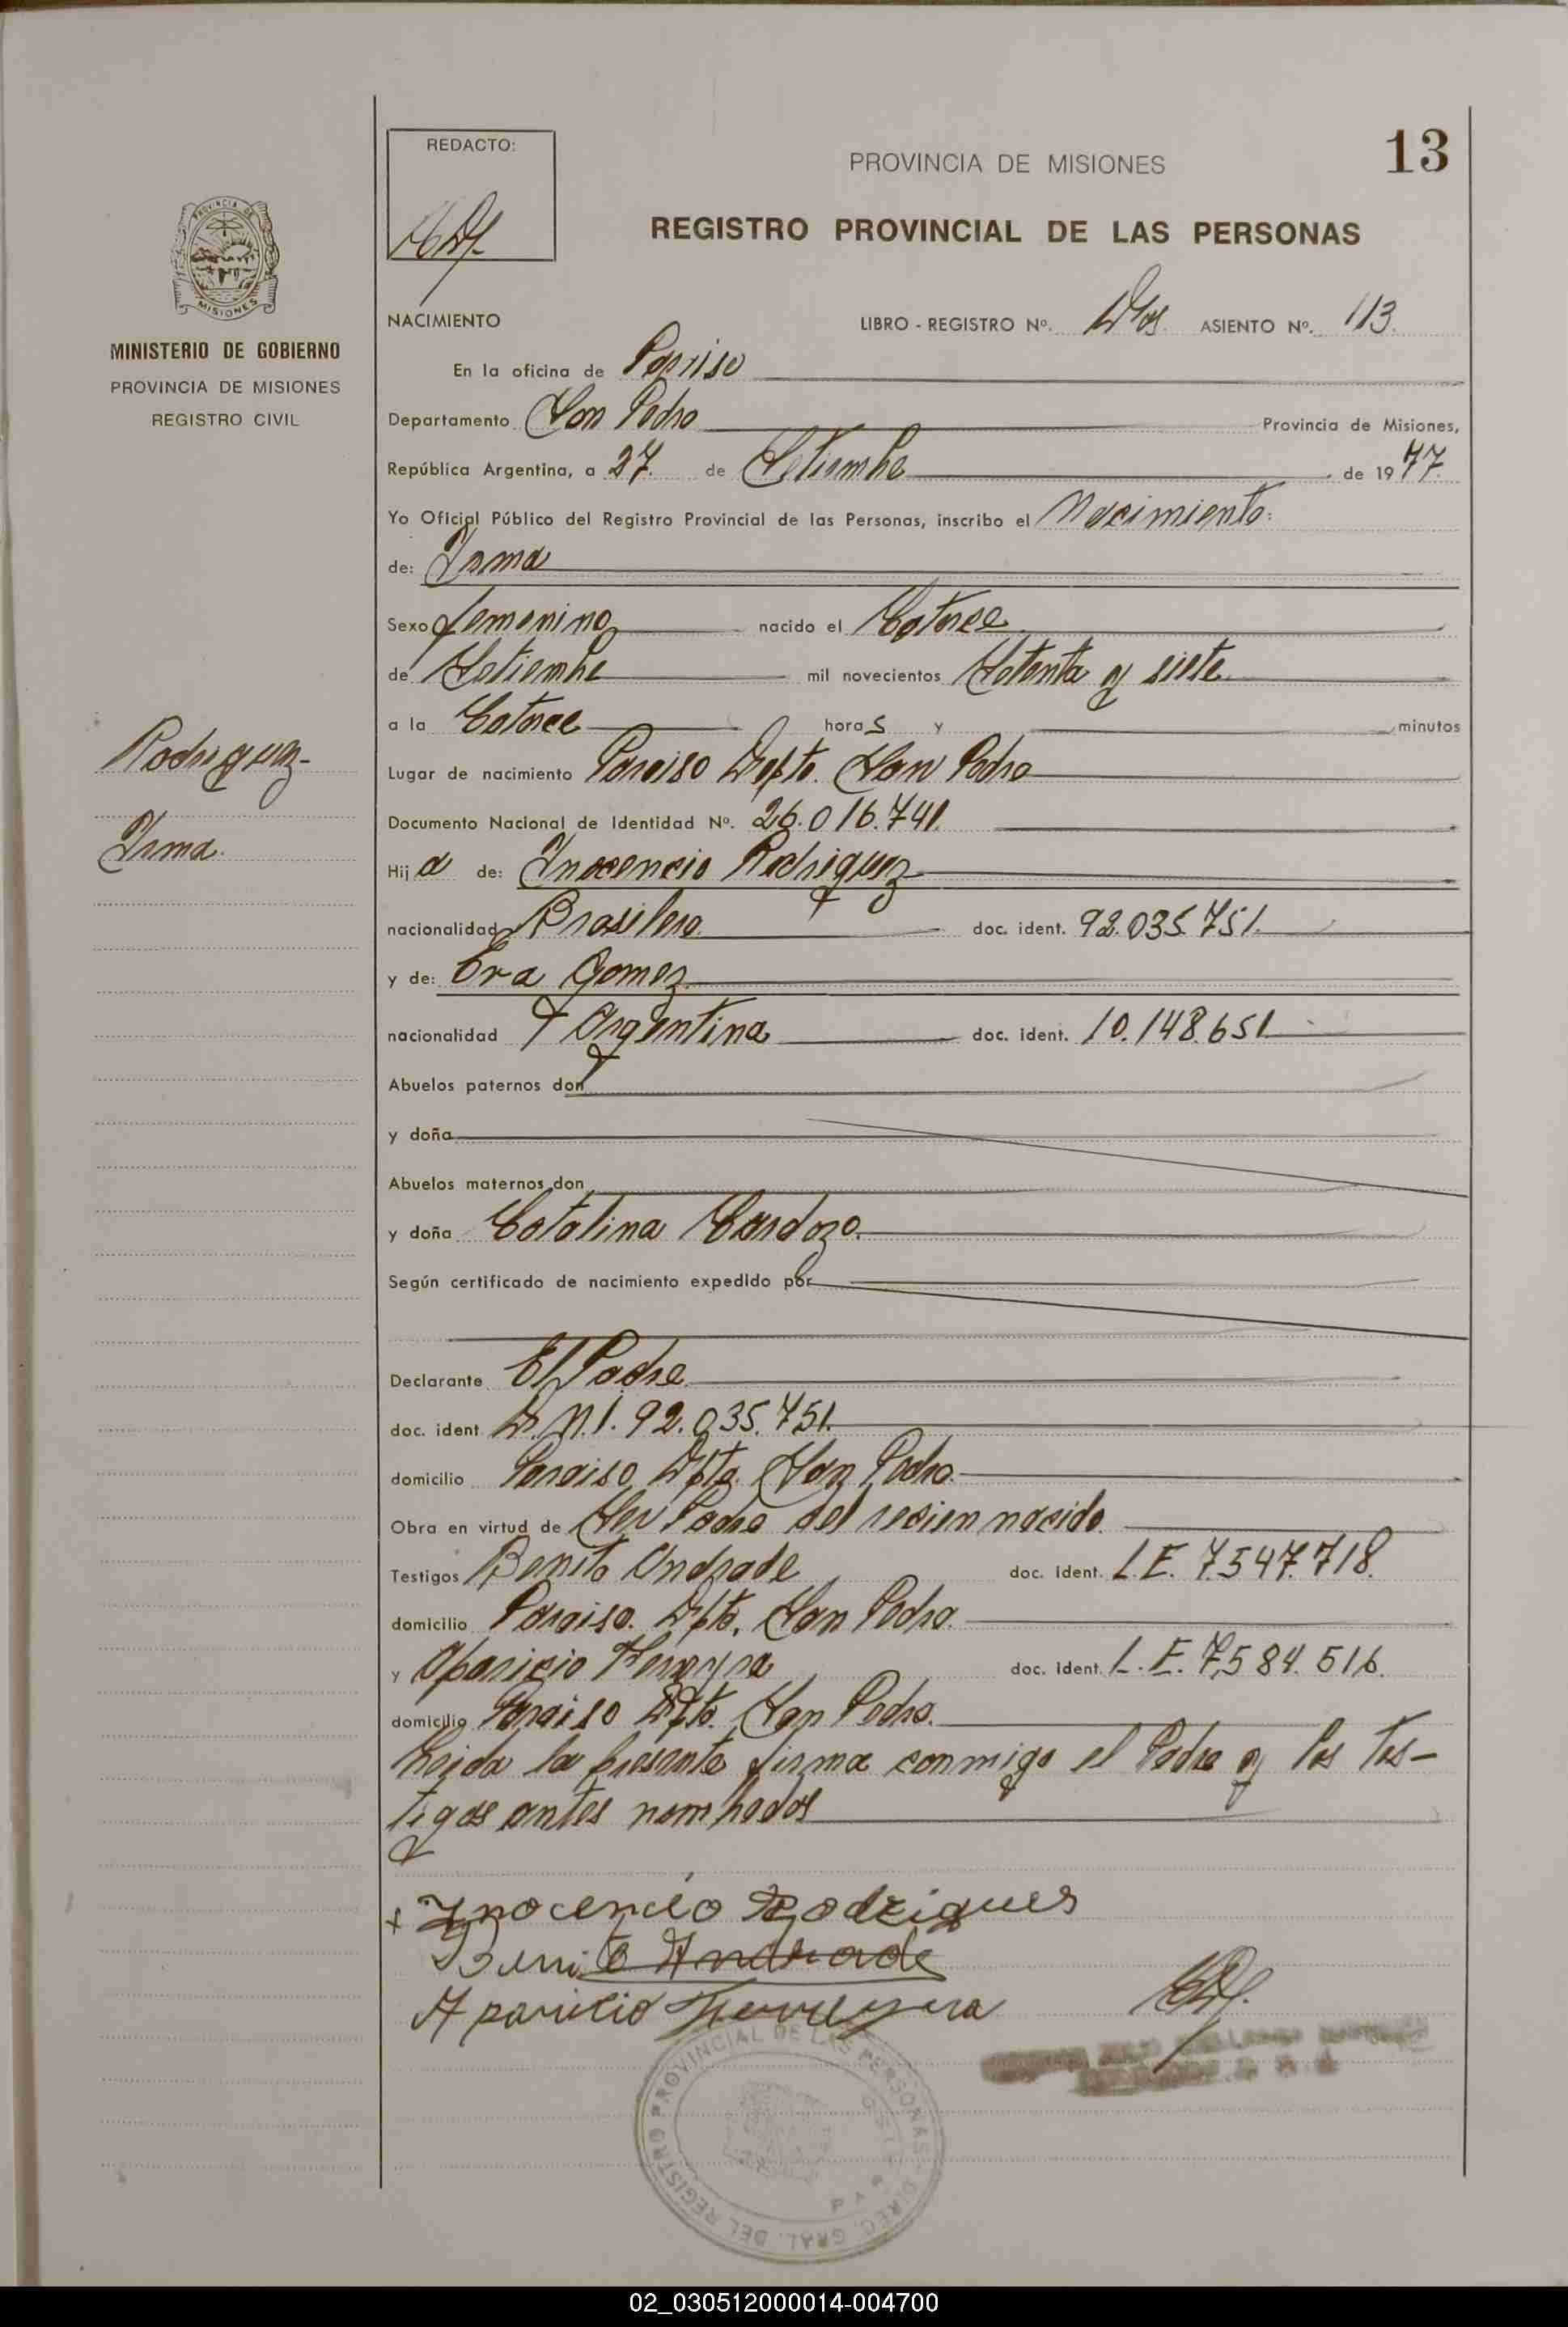 13
REDACTO:
PROVINCIA DE MISIONES
REGISTRO PROVINCIAL DE LAS PERSONAS
PROVINCIA DE
MISIONES
MINISTERIO DE GOBIERNO
PROVINCIA DE MISIONES
REGISTRO CIVIL
NACIMIENTO LIBRO - REGISTRO Nº. Dos. ASIENTO Nº. 113.
En la oficina de Paraiso
Departamento San Pedro Provincia de Misiones,
República Argentina, a 27. de Setiembre de 1977.
Yo Oficial Público del Registro Provincial de las Personas, inscribo el Nacimiento:
de: Irma
Sexo femenino nacido el Catorce
de Setiembre mil novecientos Setenta y siete
a la Catorce horas y minutos
Rodriguez-
Irma.
Lugar de nacimiento Paraiso Depto. San Pedro
Documento Nacional de Identidad Nº. 26.016.741.
Hija de: Inocencio Rodriguez
nacionalidad Brasilera doc. ident. 92.035.751.
y de: Eva Gomez
nacionalidad Argentina doc. ident. 10.148.651
Abuelos paternos don
y doña
Abuelos maternos don
y doña Catalina Cardozo.
Según certificado de nacimiento expedido por
Declarante El Padre
doc. ident D.N.I. 92.035.751.
domicilio Paraiso Dpto. San Pedro.
Obra en virtud de Ser Padre del recien nacido.
Testigos Benito Andrade doc. ident. L.E. 7.547.718.
domicilio Paraiso. Dpto. San Pedro.
y Aparicio Ferreyra doc. ident. L.E. 7.584.516.
domicilio Paraiso Dpto. San Pedro.
Leida la presente firma conmigo el Padre y los Tes-
tigos antes nombrados
x Inocencio Rodrigues
Benito Andrade
Aparicio Ferreyra
DIREC. GRAL. DEL REGISTRO PROVINCIAL DE LAS PERSONAS
02_030512000014-004700